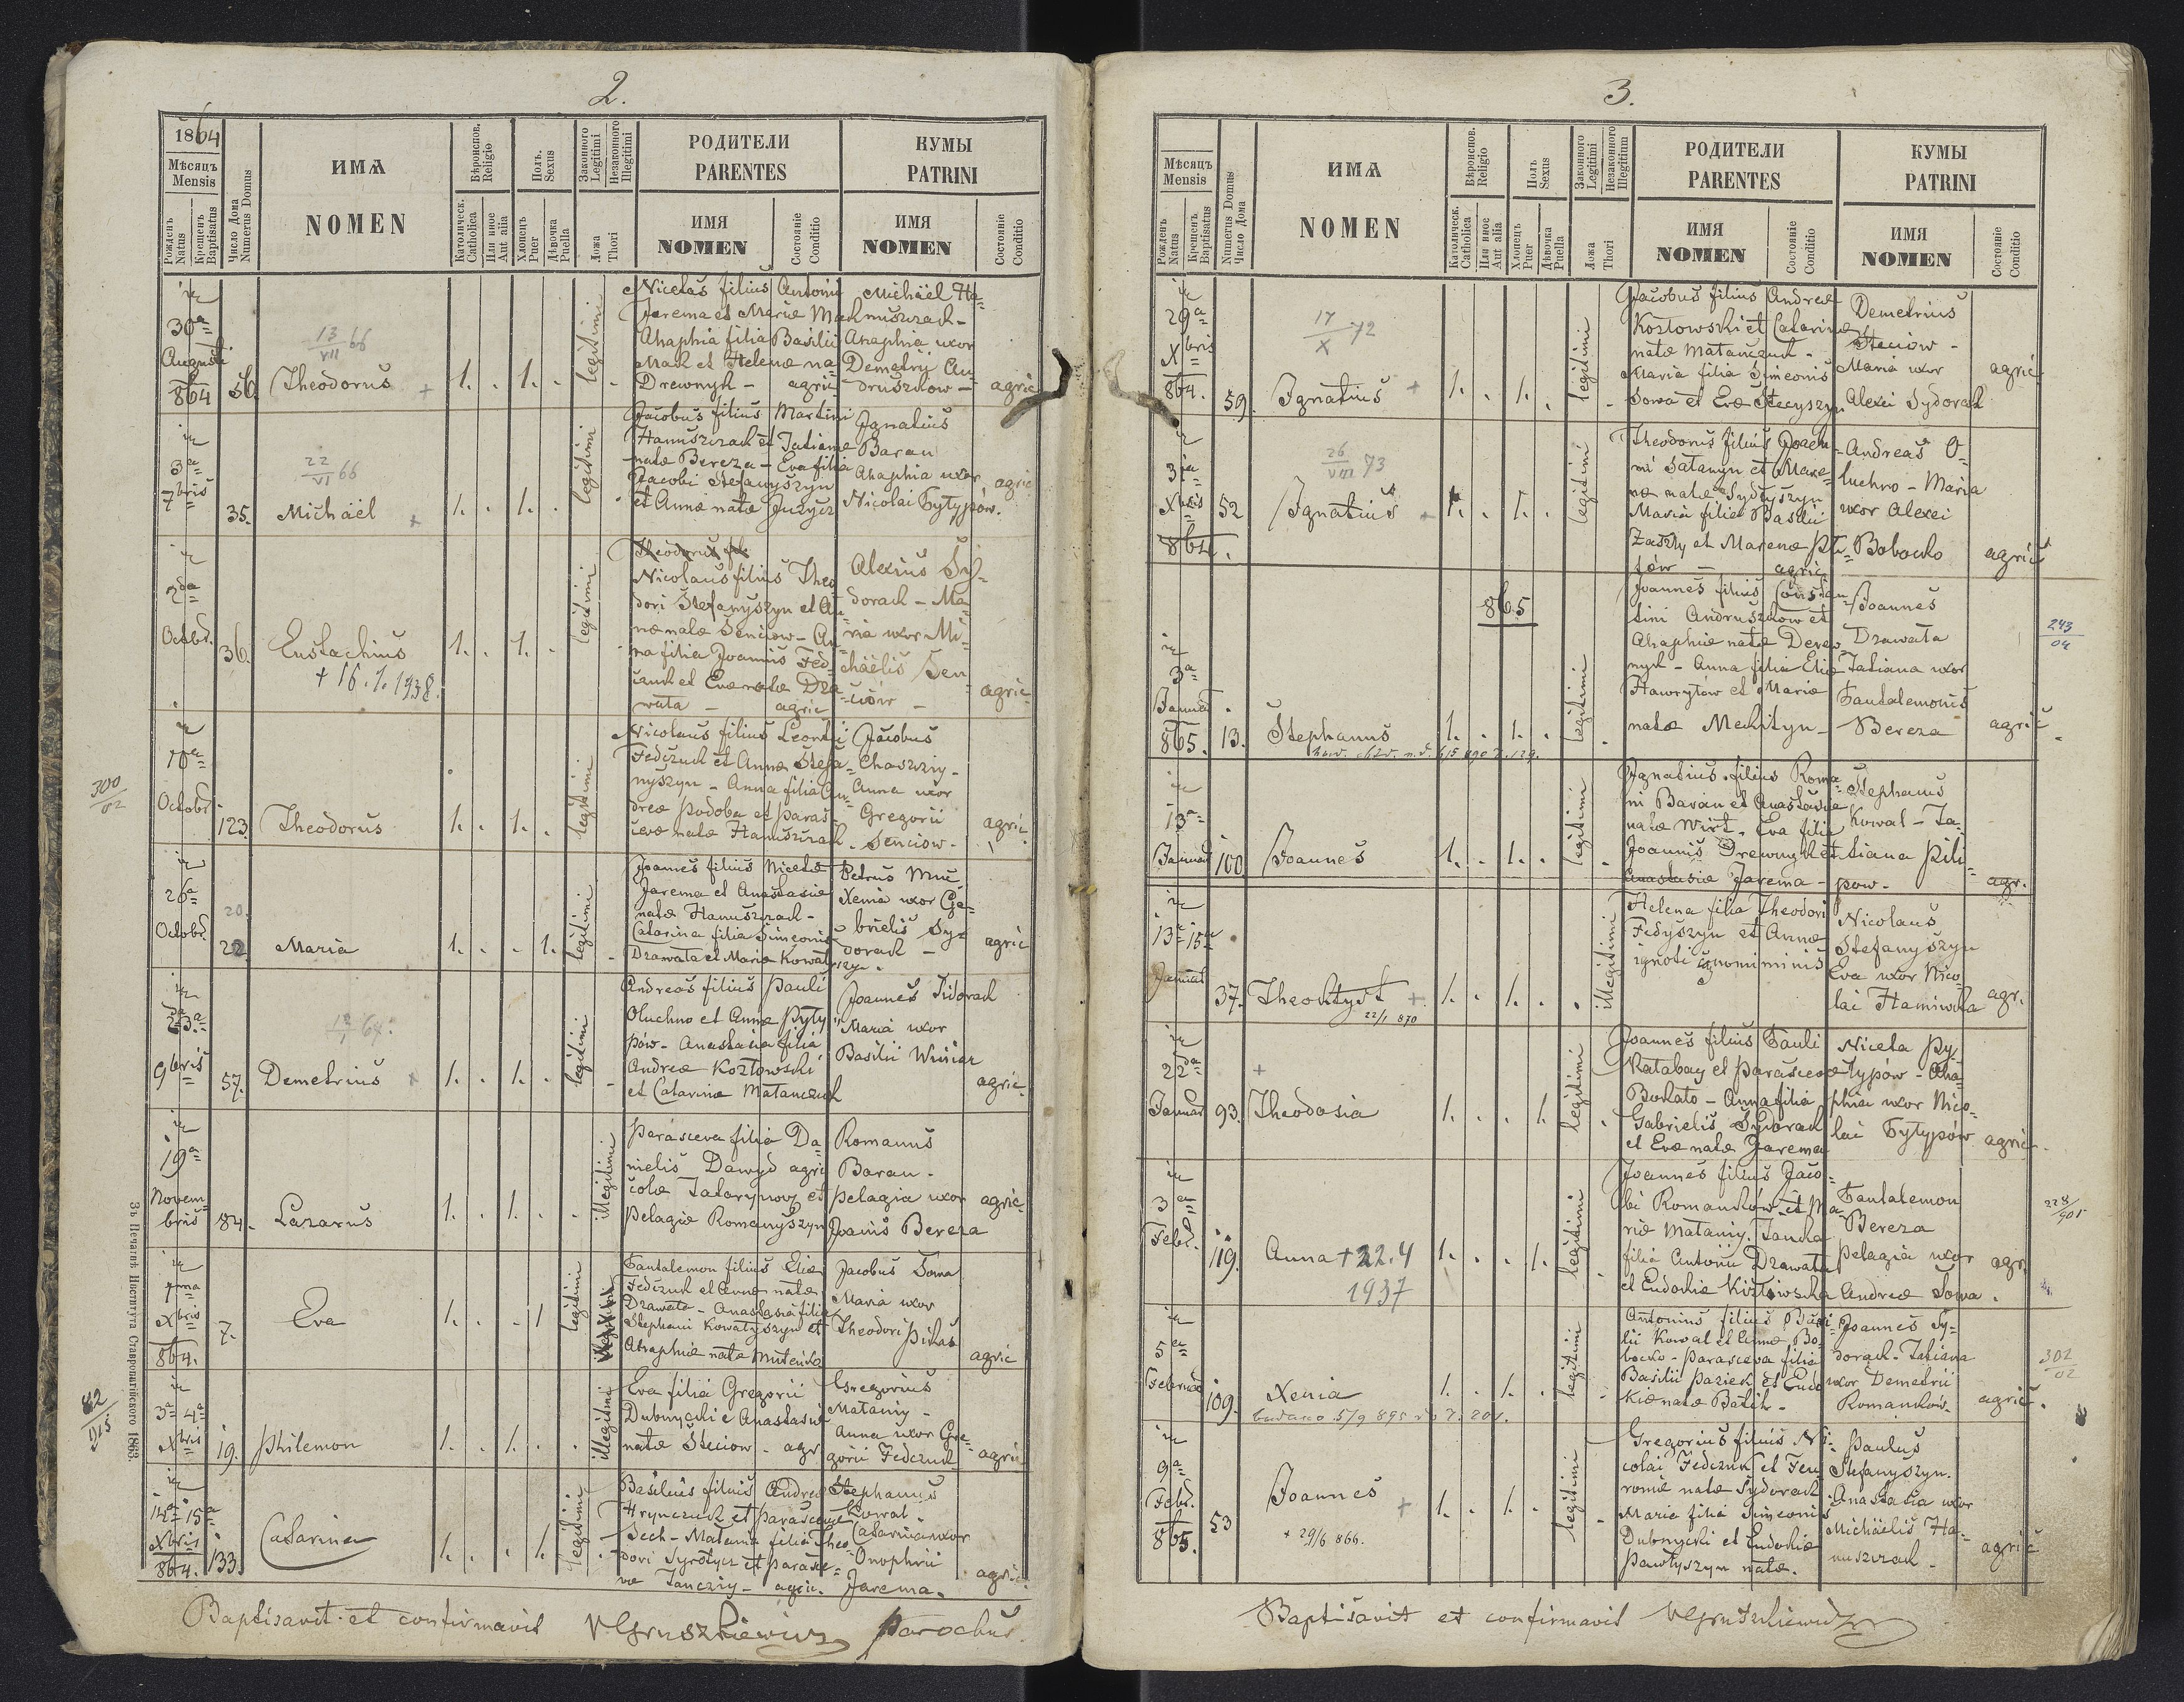 2.
1864
Мѣсяцъ
Mensis
Рожденъ
Natus
Крещенъ
Baptisatus
Число Дома
Numerus Domus
ИМѦ
NOMEN
Вѣроиспов.
Religio
Католическ.
Catholica
Или иное
Aut alia
Полъ.
Sexus
Хлопецъ
Puer
Дѣвочка
Puella
Законного
Legitimi
Незаконного
Illegitimi
Ложа
Thori
РОДИТЕЛИ
PARENTES
ИМЯ
NOMEN
Состояніе
Conditio
КУМЫ
PATRINI
ИМЯ
NOMEN
Состояніе
Conditio
30a
Augusti
864
56.
13/VII 66
Theodorus +
1. . 1. .
legitimi
Nicetas filius Antonii
Jarema et Mariæ Ma
Ahaphia filia Basilii
Mach et Helenæ na
Drewnyh - agric
Michäel Ha-
nuszczach -
Ahaphia uxor
Demetrii An-
druszkow -
agric
3a
7bris
35.
22/VI 66
Michäel +
1. . 1. .
legitimi
Jacobus filius Martini
Hanuszczach et Tatianæ
natæ Bereza - Eva filia
Jacobi Stefanyszyn
et Annæ natæ Juzycz
Ignatius
Baran
Ahaphia uxor
Nicolai Pytypów.
agric
2da
Octobr.
36.
Eustachius
+ 16.1.1938.
1. . 1. .
legitimi
Theodorus fil.
Nicolaus filius Theo
dori Stefanyszyn et An
næ natæ Senciow - An
na filia Joannis Fed
czuk et Evæ natæ Dra
wata - agric
Alexius Sy-
dorach - Ma-
ria uxor Mi-
chäelis Sen-
ciów -
agric
300/02
10a
Octobr
123.
Theodorus
1. . 1. .
legitimi
Nicolaus filius Leontii
Fedczuch et Annæ Stefa-
nyszyn - Anna filia An-
dreæ Podoba et Paras-
cevæ natæ Hanuszczach.
Jacobus
Chaszczy -
Anna uxor
Gregorii
Senciow -
agric.
26a
Octobr.
20.
22
Maria
1. . . 1.
legitimi
Joannes filius Nicetæ
Jarema et Anastasiæ
natæ Hanuszczach -
Catarina filia Simeonis
Drawata et Mariæ Kowaly
szyn.
Petrus
Xenia uxor Ga-
brielis Sy-
dorach -
agric
23a
9bris
57.
Demetrius +
1. . 1. .
legitimi
Andreas filius Pauli
Oluchno et Annæ Pyty
pów - Anastasia filia
Andreæ Kozłowski
et Catarinæ Matanczuch
Joannes Sidorach
Maria uxor
Basilii
agric
19a
Novem-
bris
84.
Lazarus
1. . 1. .
illegitimi
Parasceva filia Da-
nielis Dawyd agri
colæ Tatarynovy et
Pelagiæ Romanyszyn
Romanus
Baran -
Pelagia uxor
Joanis Bereza
agric
1ma
Xbris
864.
7.
Eva
1. . . 1
legitimi
Pantalemon filius Eliæ
Fedczuk et Annæ natæ
Drawata - Anastasia filia
Stephani Kowalyszyn et
Ahaphiæ natæ
Jacobus Sowa
Maria uxor
Theodori
agric
82/915
3a 4a
Xbris
19.
Philemon
1. . 1. .
illegitimi
Eva filia Gregorii
Dubnycki e Anastasiæ
natæ Steciow - agr
Gregorius
Mataniy -
Anna uxor Gre-
gorii Fedczuk
agric
14a 15a
Xbris
864.
133.
Catarina
1. . . 1.
legitimi
Basilius filius Andreæ
Hrynczuch et Parascevæ
Sech - Matrona filia Theo-
dori Syrotycz et Parasce-
væ Janczy - agric.
Stephanus
Kowal.
Catarina uxor
Onophrii
Jarema.
agric.
Baptisavit et confirmavit Parochus.
Зъ Печатнѣ Института Ставропигійского 1863.
3.
Мѣсяцъ
Mensis
Рожденъ
Natus
Крещенъ.
Baptisatus
Numerus Domus
Число Дома
ИМѦ
NOMEN
Вѣроиспов.
Religio
Католическ.
Catholica
Или иное
Aut alia
Полъ
Sexus
Хлопецъ
Puer
Дѣвочка
Puella
Законного
Legitimi
Незаконного
Illegitimi
Ложа
Thori
РОДИТЕЛИ
PARENTES
ИМЯ
NOMEN
Состояніе
Conditio
КУМЫ
PATRINI
ИМЯ
NOMEN
Состояніе
Conditio
29a
Xbris
864.
59.
17/X 72
Ignatius +
1. . 1. .
legitimi
Jacobus filius Andreæ
Kozłowski et Catarinæ
natæ Matanczuch -
Maria filia Simeonis
Sowa et Evæ Stecyszyn
Demetrius
Steciow -
Maria uxor
Alexei Sydorach
agric
31a
Xbris
864.
52
26/VIII 73
Ignatius
1. . 1. .
legitimi
Theodorus filius Joach-
mi Satanyn et Mare-
næ natæ Sydyszyn
Maria filia Basilii
Zaszly et Marenæ
- agric
Andreas O-
luchno - Maria
uxor Alexei
Bobocko
agric
865
3a
Januar
865.
13.
Stephanus
1. . 1. .
legitimi
Joannes filius Constan-
tini Andruszkow et
Ahaphiæ natæ Derew-
nych - Anna filia Eliæ
Hawrytów et Mariæ
natæ Mechityn -
Joannes
Drawata
Tatiana uxor
Pantalemonis
Bereza
agric
243/04
13a
Januar
100
Joannes
1. . 1. .
legitimi
Ignatius filius Roma-
ni Baran et Anastasiæ
natæ Wirt. Eva filia
Joannis Drewnych et
Anastasiæ Jarema -
Stephanus
Kowal - Ta-
tiana Pili-
pow.
agr.
13a 15a
Januar
37.
Theoktyst +
22/1 870
1. . 1. .
illegitimi
Helena filia Theodori
Fedyszyn et Annæ
ignoti
Nicolaus
Stefanyszyn
Eva uxor Nico
lai
agr.
22da
Januar
93.
+
Theodosia
1. . . 1.
legitimi
Joannes filius Pauli
Katabay et Parascevæ
Bochato - Anna filia
Gabrielis Sydorach
et Evæ natæ Jarema
Niceta Py-
typów - Aha-
phia uxor Nico-
lai Pytypów
agric.
3a
Febr.
119.
Anna + 22.4
1937
1. . . 1.
legitimi
Joannes filius Jaco-
bi Romanków et Ma-
riæ Mataniy.
filia Antonii Drawata
et Eudochiæ Kozłowska
Pantalemon
Bereza
Pelagia uxor
Andreæ Sowa.
agr.
5a
Februar
109.
Xenia
1. . 1. .
legitimi
Antonius filius Basi-
lii Kowal et Annæ Bo-
bocko - Parasceva filia
Basilii Paziek et Eudo
kiæ natæ Batih -
Joannes Sy-
dorach - Tatiana
uxor Demetrii
Romanków.
agric.
302/02
9a
Febr.
865.
53
Joannes +
+ 29/6 866.
1. . 1. .
legitimi
Gregorius filius Ni-
colai Fedczuk et Fev
roniæ natæ Sydorach
Maria filia Simeonis
Dubnycki et Eudokiæ
Pawłyszyn natæ.
Paulus
Stefanyszyn.
Anastasia uxor
Michäelis Ha-
nuszczach -
agric
Baptisavit et confirmavit